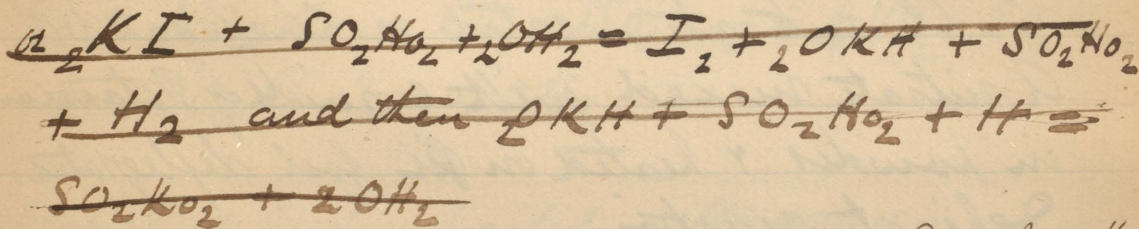 or ₂KI + SO₂Ho₂ + ₂OH₂ = I₂ + ₂OKH + SO₂Ho₂
+ H₂ and then ₂OKH + SO₂Ho₂ + H =
SO₂Ko₂ + 2OH₂